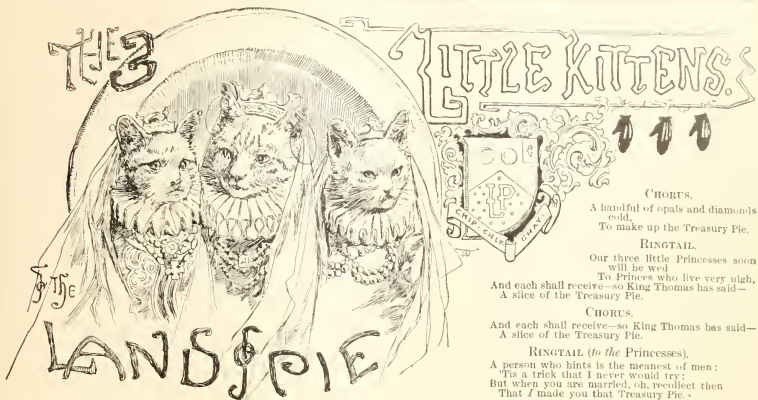 THE 3
LITTLE KITTENS.
OF THE
LAND OF PIE
LP
CHIP-CHIP CHAY
CHORUS.
A handful of opals and diamonds
cold,
To make up the Treasury Pie.
RINGTAIL.
Our three little Princesses soon
will be wed
To Princes who live very nigh,
And each shall receive—so King Thomas has said—
A slice of the Treasury Pie.
CHORUS.
And each shall receive—so King Thomas has said—
A slice of the Treasury Pie.
RINGTAIL (to the Princesses).
A person who hints is the meanest of men;
'Tis a trick that I never would try;
But when you are married, oh, recollect then
That I made you that Treasury Pie.